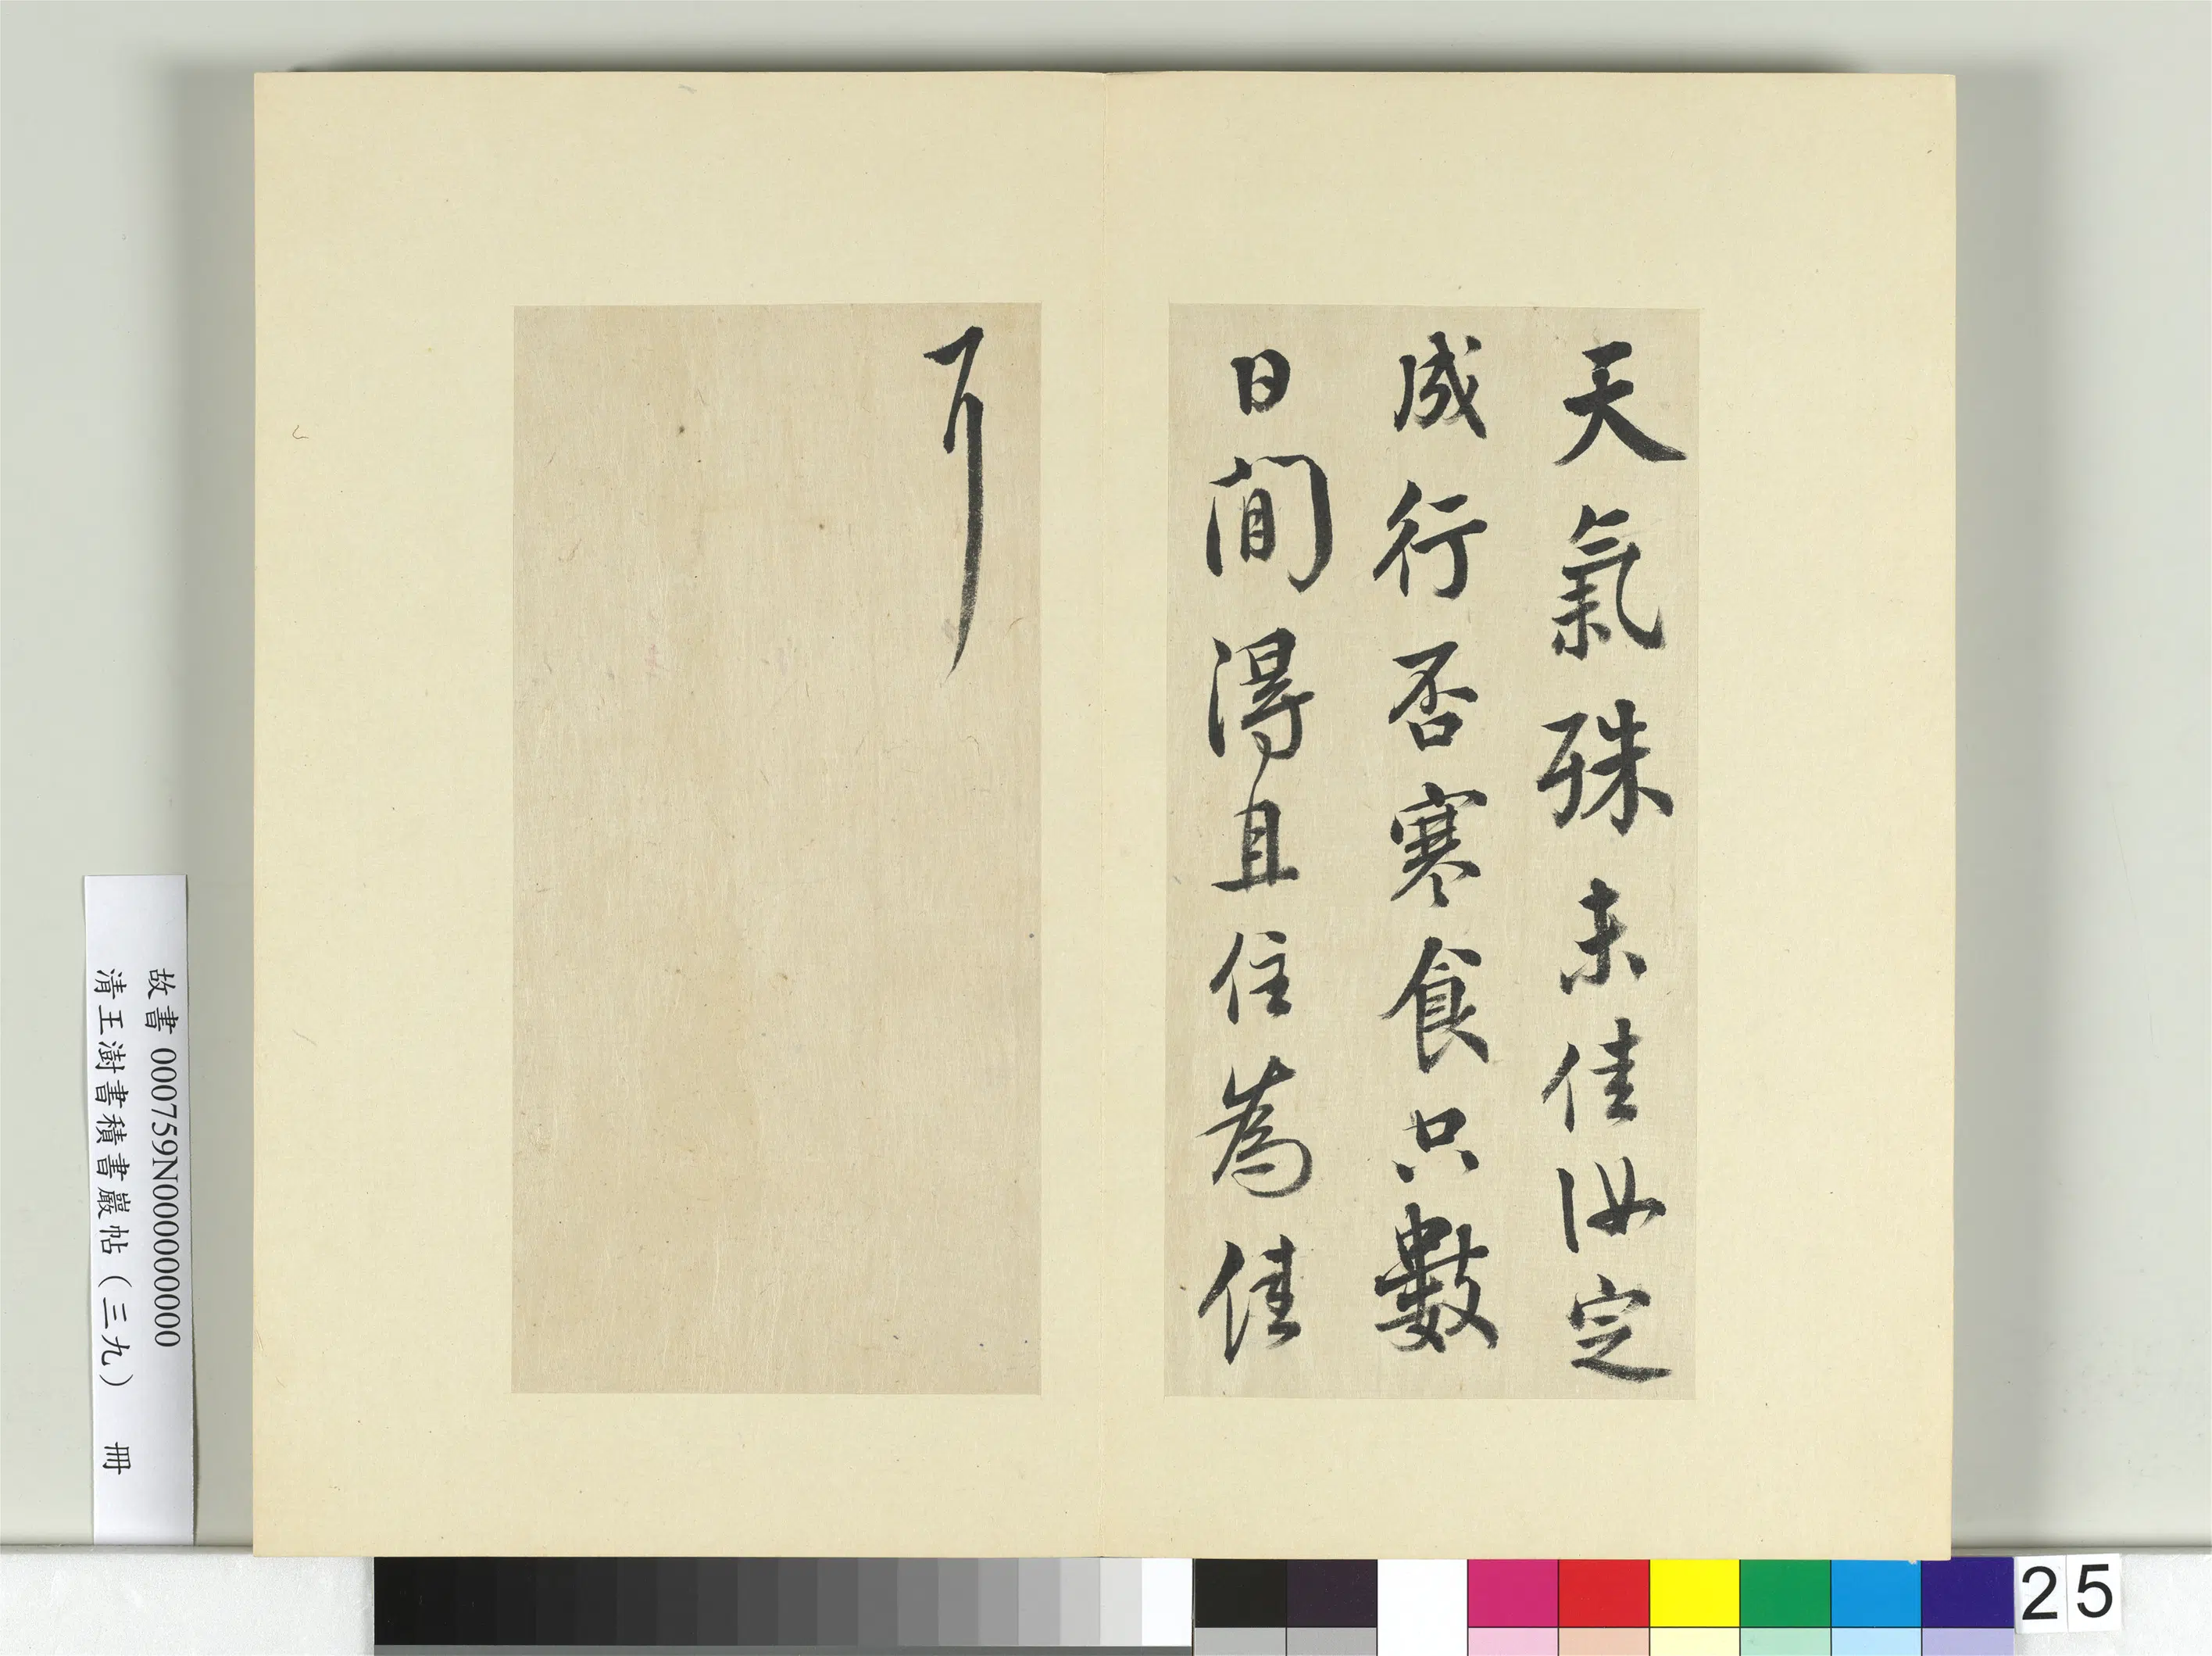 天氣殊未佳汝定
成行否寒食只數
日間得且住為佳
耳
故書 000759N000000000
清王澍書積書巖帖（三九） 冊
25